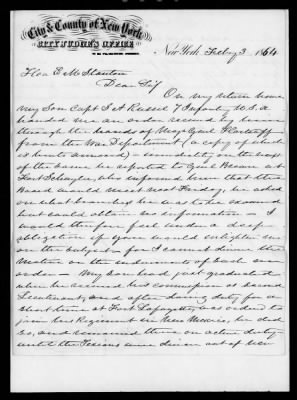 City & County of New York
CITY JUDGE'S OFFICE
New York Feby 3 1864
Hon E M Stanton
Dear Sir
On my return home
my Son Capt G A Russel 7 Infantry U.S.A
handed me an order received by him
through the hands of Major Genl
from the War Department (a copy of which
is hereto annexed) - immediately on the receipt
of the same he reported to Genl Brown at
Fort Schuyler, who informed him that the
Board would meet next Friday, he asked
on what branches he was to be examined
but could obtain no information - I
would therefore feel under a deep
obligation if you would enlighten me
on the subject for I cannot divine the
motive or the inducements of such an
order - My son had just graduated
when he received his commission as second
Lieutenant, and after doing duty for a
short time at Fort Lafayette, was ordered to
join his Regiment in New Mexico, he did
so, and remained there on active duty
until the Texians were driven out of New